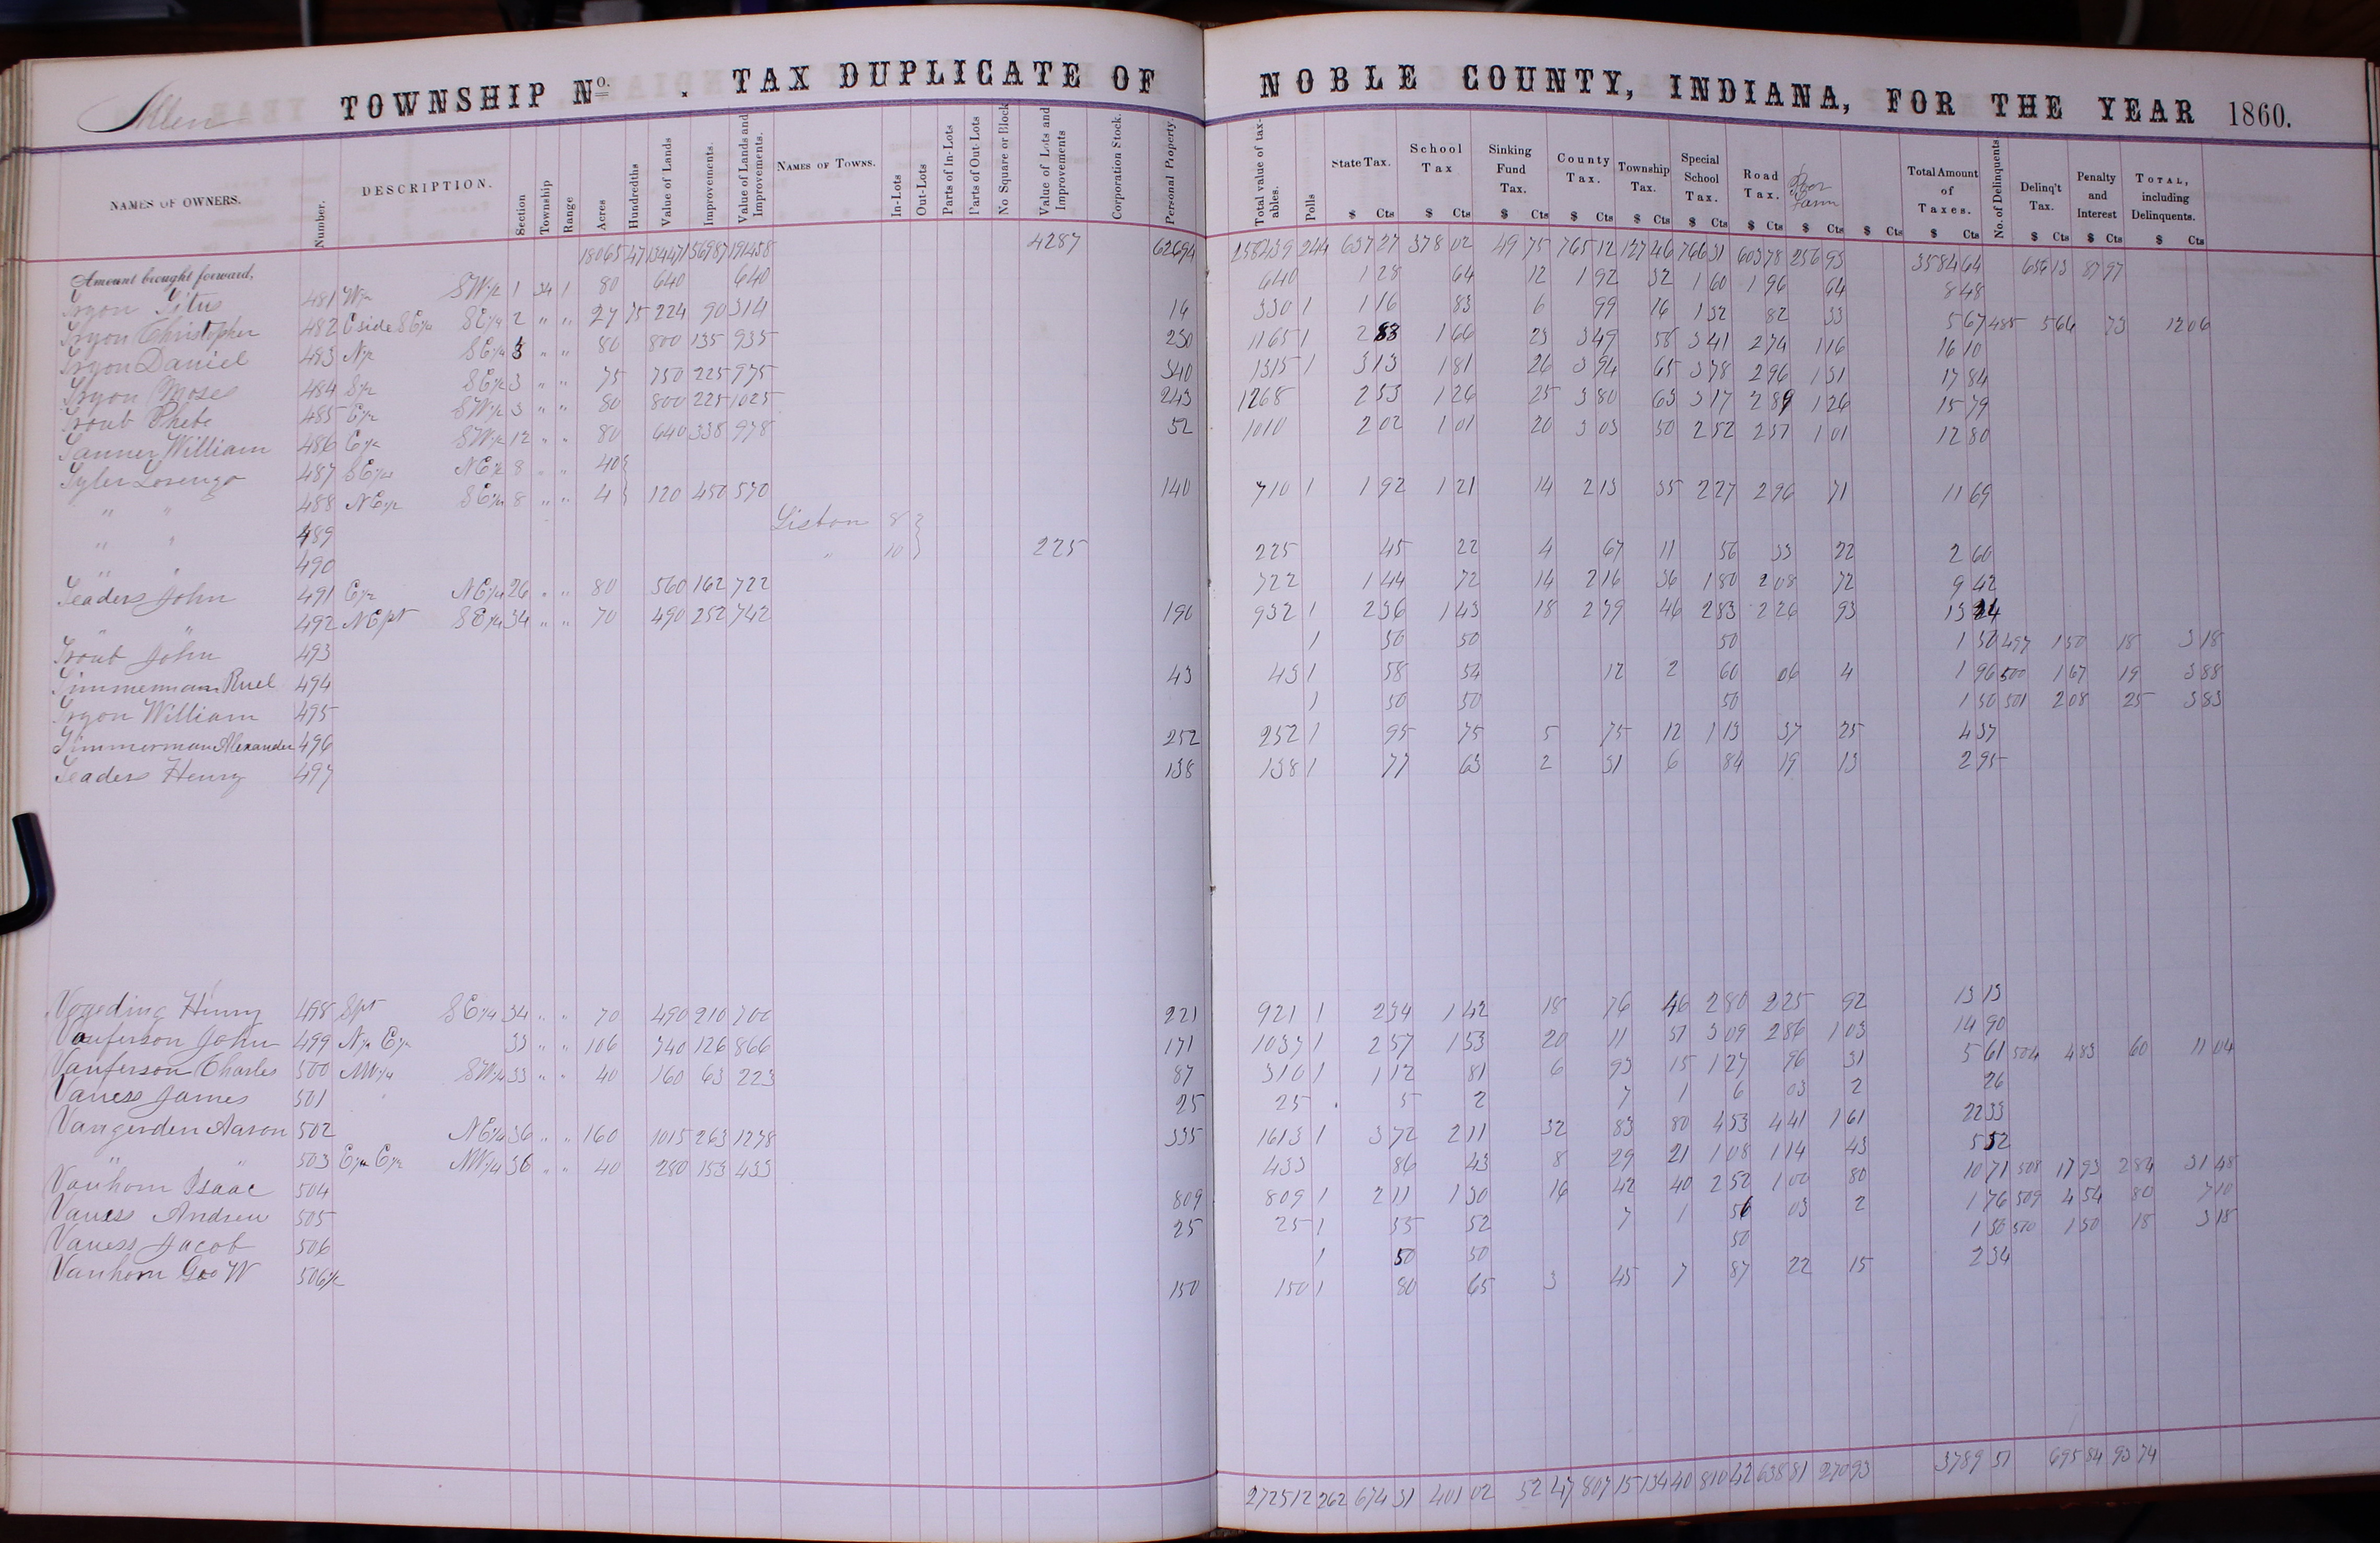 Allen TOWNSHIP No. . TAX DUPLICATE OF NOBLE COUNTY, INDIANA, FOR THE YEAR 1860.
NAMES OF OWNERS. Number. DESCRIPTION. Section Township Range Acres Hundredths Value of Lands Improvements. Value of Lands and Improvements. NAMES OF TOWNS. In-Lots Out-Lots Parts of In-Lots Parts of Out-Lots No Square or Block Value of Lots and Improvements Corporation Stock. Personal Property. Total value of taxables. Polls State Tax. School Tax Sinking Fund Tax. County Tax. Township Tax. Special School Tax. Road Tax. Poor Farm Total Amount of Taxes. No. of Delinquents Delinq't Tax. Penalty and Interest TOTAL, including Delinquents.
$ Cts $ Cts $ Cts $ Cts $ Cts $ Cts $ Cts $ Cts $ Cts $ Cts $ Cts $ Cts $ Cts
Amount brought forward, 18065 47 134471 56987 191458 4287 62694 258439 244 637 27 378 02 49 75 765 12 127 46 766 31 603 78 256 93 3584 64 656 13 87 97
Tryon Titus 481 W½ SW¼ 1 34 1 80 640 640 640 1 28 64 12 1 92 32 1 60 1 96 64 8 48
Tryon Christopher 482 E side SE¼ SE¼ 2 " " 27 75 224 90 314 16 330 1 1 16 83 6 99 16 1 32 82 33 5 67 485 5 66 73 12 06
Tryon Daniel 483 N½ SE¼ 3 " " 80 800 135 935 230 1165 1 2 83 1 66 23 3 49 58 3 41 2 74 1 16 16 10
Tryon Moses 484 S½ SE¼ 3 " " 75 750 225 975 340 1315 1 3 13 1 81 26 3 94 65 3 78 2 96 1 31 17 84
Trout Phebe 485 E½ SW¼ 3 " " 80 800 225 1025 243 1268 2 53 1 26 25 3 80 63 3 17 2 89 1 26 15 79
Tanner William 486 E½ SW¼ 12 " " 80 640 338 978 32 1010 2 02 1 01 20 3 03 50 2 52 2 51 1 01 12 80
Tyler Lorenzo 487 SE¼ NE¼ 8 " " 40
" " 488 NE½ SE¼ 8 " " 4 120 450 570 140 710 1 1 92 1 21 14 2 13 35 2 27 2 96 71 11 69
" " 489 Lisbon 8
" " 490 " 10 225 225 45 22 4 67 11 56 33 22 2 60
Teaders John 491 E½ NE¼ 26 " " 80 560 162 722 722 1 44 72 14 2 16 36 1 80 2 08 72 9 42
" 492 NE pt SE¼ 34 " " 70 490 252 742 190 932 1 2 36 1 43 18 2 79 46 2 83 2 26 93 13 24
Trout John 493 1 50 50 50 1 50 497 1 50 18 3 18
Timmerman Ruel 494 43 43 1 58 54 12 2 60 06 4 1 96 500 1 67 19 3 88
Tryon William 495 1 50 50 50 1 50 501 2 08 25 3 83
Timmerman Alexander 496 252 252 1 95 75 5 75 12 1 13 37 25 4 37
Teaders Henry 497 138 138 1 77 63 2 31 6 84 19 13 2 95
Vogeding Henry 498 S pt SE¼ 34 " " 70 490 210 700 221 921 1 2 34 1 42 18 76 46 2 80 2 25 92 13 13
Vanferson John 499 N½ E½ 33 " " 106 740 126 866 171 1037 1 2 57 1 53 20 11 51 3 09 2 86 1 03 14 90
Vanferson Charles 500 NW¼ SW¼ 33 " " 40 160 63 223 87 310 1 1 12 81 6 93 15 1 27 96 31 5 61 504 4 83 60 11 04
Vaness James 501 25 25 5 2 7 1 6 03 2 26
Vangorden Aaron 502 NE¼ 36 " " 160 1015 263 1278 335 1613 1 3 72 2 11 32 83 80 4 53 4 41 1 61 22 33
" " 503 E½ E½ NW¼ 36 " " 40 280 153 433 433 86 43 8 29 21 1 08 1 14 43 5 52
Vanhorn Isaac 504 809 809 1 2 11 1 30 16 42 40 2 52 1 00 80 10 71 508 17 93 2 84 31 48
Vaness Andrew 505 25 25 1 55 52 7 1 56 03 2 1 76 509 4 54 80 7 10
Vaness Jacob 506 1 50 50 50 1 50 510 1 50 18 3 18
Vanhorn Geo W 506½ 150 150 1 80 65 3 45 7 87 22 15 2 34
272512 262 674 31 401 02 52 47 807 15 134 40 810 42 638 81 270 93 3789 51 695 84 93 74